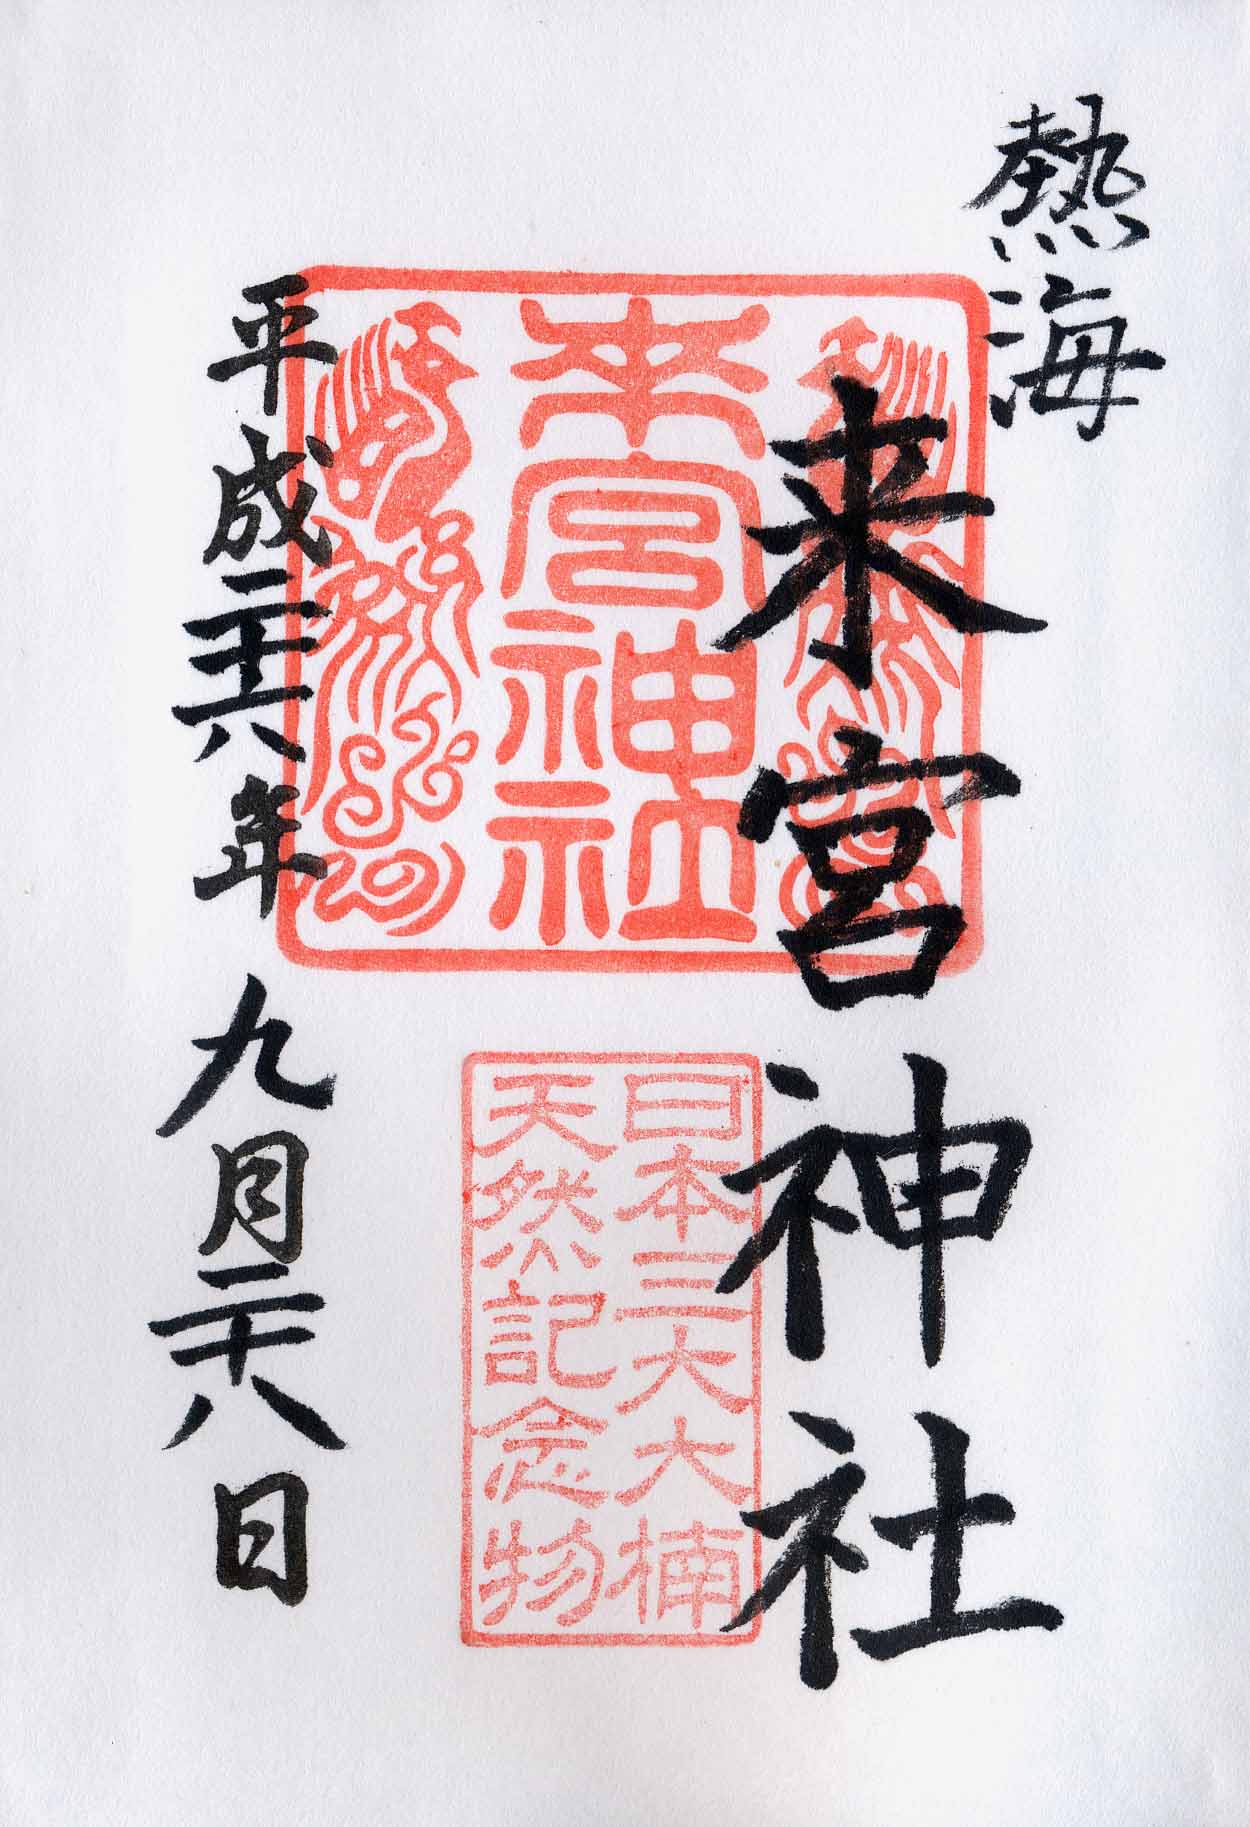 熱海
来宮神社
来宮神社
日本三大大楠
天然記念物
平成二十六年九月二十八日